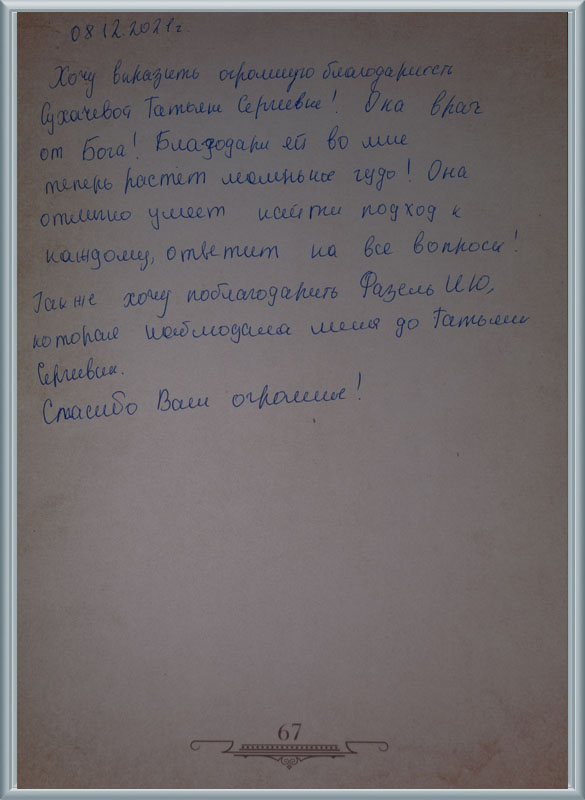 08.12.2021г.
Хочу выразить огромную благодарность
Сухачевой Татьяне Сергеевне! Она врач
от Бога! Благодаря ей во мне
теперь растет маленькое чудо! Она
отлично умеет найти подход к
каждому, ответит на все вопросы!
Так же хочу поблагодарить Фазель И.Ю,
которая наблюдала меня до Татьяны
Сергеевны.
Спасибо Вам огромное!
67